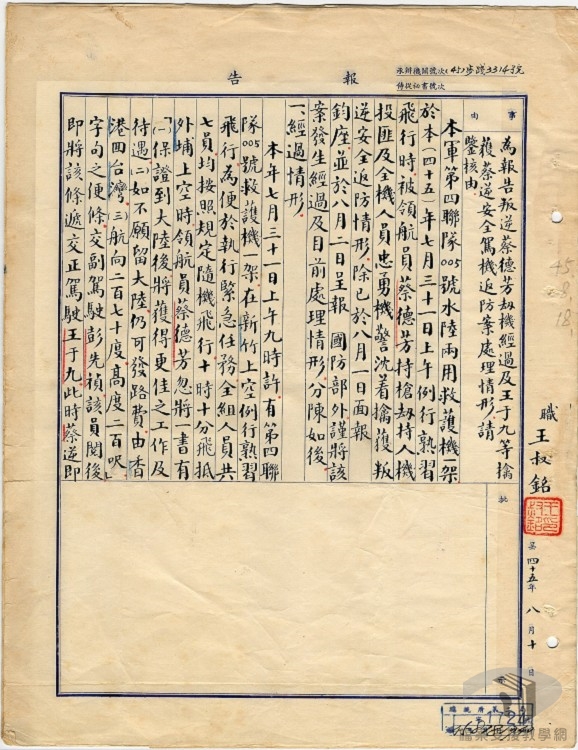 報告
承辦機關號次(45)步踐3314號
傳從祕書號次
事由
為報告叛逆蔡德芳劫機經過及王于九等擒
獲蔡逆安全駕機返防案處理情形請
鑒核由
本軍第四聯隊005號水陸兩用救護機一架
於本(四十五)年七月三十一日上午例行熟習
飛行時被領航員蔡德芳持槍劫持人機
投匪及全機人員忠勇機警沈着擒獲叛
逆安全返防情形除已於八月一日面報
鈞座並於八月二日呈報 國防部外謹將該
案發生經過及目前處理情形分陳如後
一、經過情形
本年七月三十一日上午九時許有第四聯
隊005號救護機一架在新竹上空例行熟習
飛行為便於執行緊急任務全組人員共
七員均按照規定隨機飛行十時十分飛抵
外埔上空時領航員蔡德芳忽將一書有
「(一)保證到大陸後將獲得更佳之工作及
待遇(二)如不願留大陸仍可發路費由香
港回台灣(三)航向二百七十度高度二百呎」
字句之便條交副駕駛彭先禎該員閱後
即將該條遞交正駕駛王于九此時蔡逆即
批
職 王叔銘
四十五年八月十日
45.8.18.
檔案支援教學網